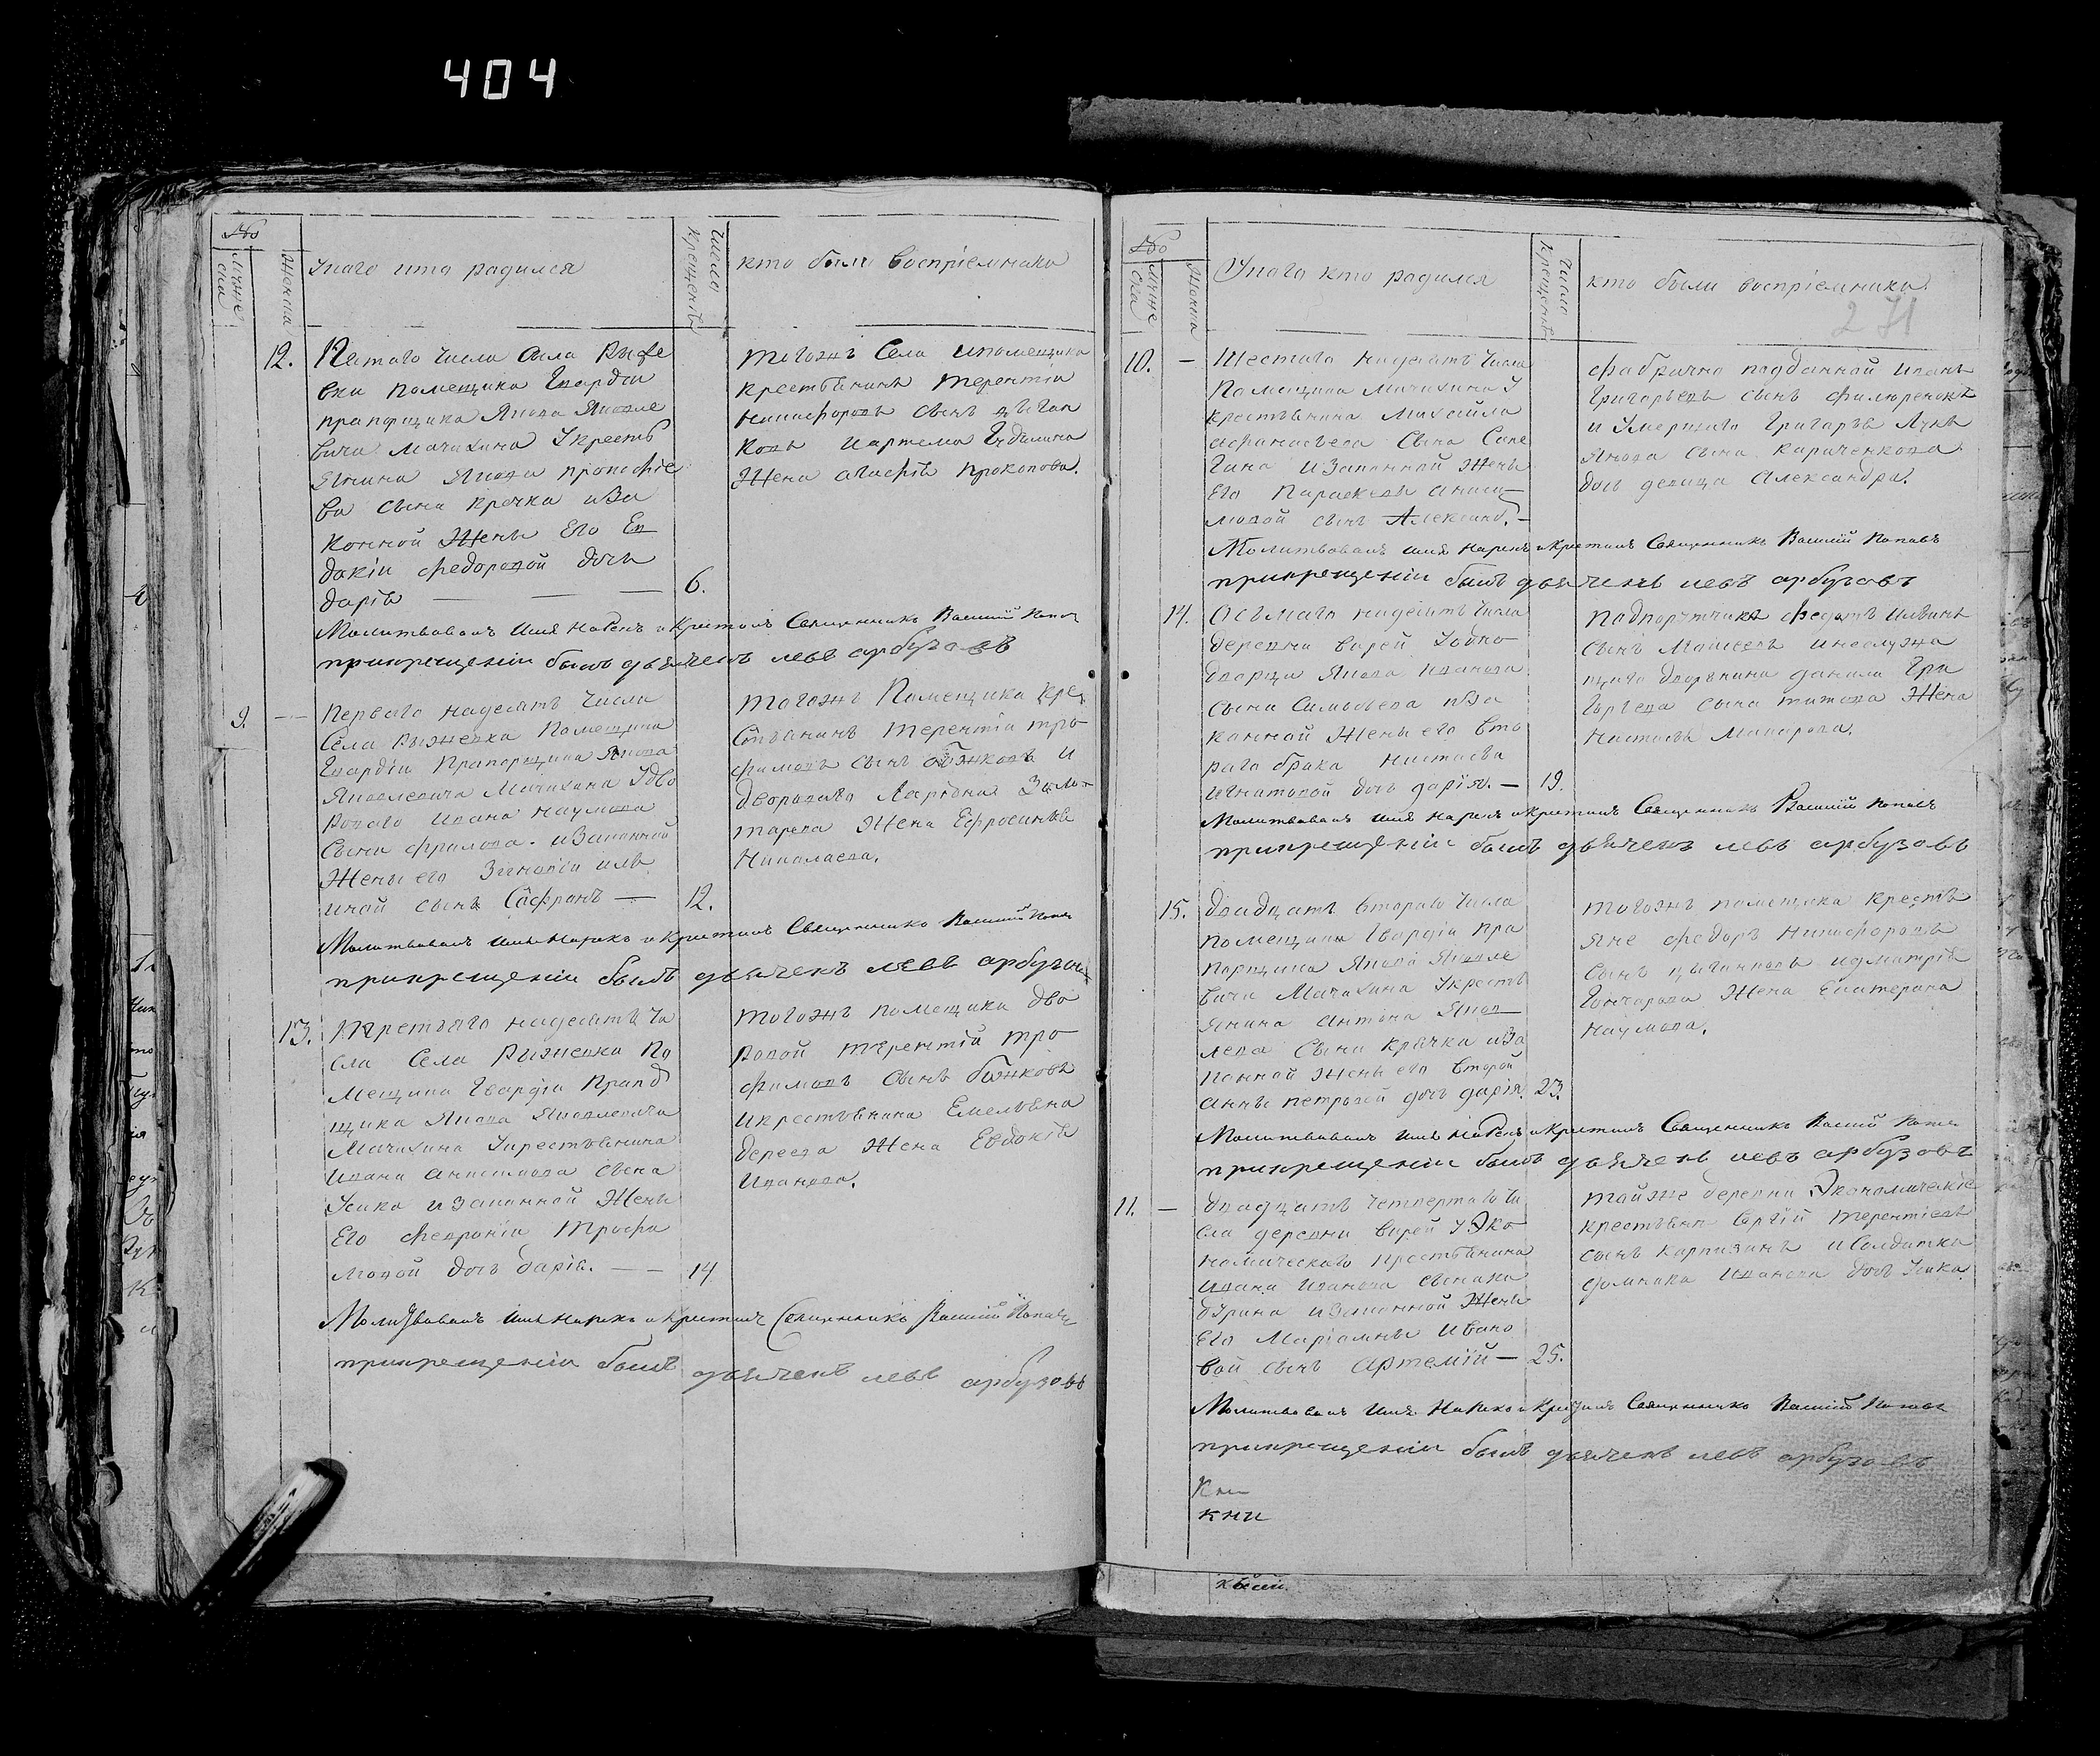 404
№
Муже
ска
Женска
Унаго кто радился
Число
Крещенiя
кто были воспрiемники
12.
Пятаго числа Села Рыже
вки памещика Гвардiи
прапорщика Якова Яковле
вича Мачихина У крестья
янина Якова прокофiе
ва сына крячка и За
конной Жены Его Ев
докiи Федоровой дочь
дарiя
6.
тогожъ Села и помещика
крестьянинъ терентiй
Никифоровъ сынъ цыган
ковъ и артема
Жена агафiя прокопова.
Молитвовалъ имя нарекъ и крестилъ Священникъ Василiй Попов
прикрещенiи былъ дьячекъ левъ арбузовъ
9.
Перваго надесять Числа
Села Рыжевка Помещика
Гвардiи Прапорщика Якова
Яковлевича Мачихина У дво
роваго Ивана наумова
Сына фролова. и Законной
Жены его Зиновiи иль
иной сынъ Сафронъ
12.
тогожъ Помещика кре
стьянинъ терентiй тро
фимовъ сынъ Бужковъ и
двороваго Лариона Золо
тарева Жена Ефросинья
Николаева.
Молитвовалъ имя нарекъ и крестилъ Священникъ Василiй Попов
прикрещенiи былъ дьячекъ левъ арбузовъ
13.
Третьяго надесять чи
сла Села Рыжевка По
мещика Гвардiи Прапор
щика Якова Яковлевича
Мачихина У крестьянина
Ивана анисимова сына
Усика и Законной Жены
Его Февронiи Трофи
мовой дочь дарiя.
14
тогожъ помещика дво
ровой терентiй тро
фимовъ сынъ бужковъ
и крестьянина Емельяна
Жена Евдокiя
Иванова.
Молитвовалъ имя нарекъ и крестилъ Священникъ Василiй Поповъ
прикрещенiи былъ дьячекъ левъ арбузовъ
№
Муже
ска
Женска
Унаго кто радился
Число
Крещенiя
кто были воспрiемники
271
10.
Шестаго надесять Числа
Памещика Мачихина У
крестьянина Михайла
афанасьева Сына Сапе
гина и Законной Жены
Его Параскевы аниси
мовой сынъ Александ.
фабрично подданной иванъ
Григорьевъ сынъ
и Умершаго Григорья
Якова сына кириченкова
дочь девица Александра.
Молитвовалъ имя нарекъ и крестилъ Священникъ Василiй Поповъ
прикрещенiи былъ дьячекъ левъ арбузовъ
14.
Осьмаго надесять Числа
деревни вирей У одно
дворца Якова иванова
сына и За
конной Жены его вто
раго брака настасьи
игнатовой дочь дарiя.
19.
падпорутчикъ Федотъ
сынъ Мойсеевъ и неслужа
щаго дворянина данила Гри
горьева сына титова Жена
настасья Макарова.
Молитвовалъ имя нарекъ и крестилъ Священникъ Василiй Поповъ
прикрещенiи былъ дьячекъ левъ арбузовъ
15.
двадцать втораго Числа
помещика Гвардiи пра
порщика Якова Яковле
вича Мачихина У кресть
янина Антона Яков
лева Сына Крячка и За
конной Жены его второй
анны петровой дочь дарiя.
23.
тогожъ помещика кресть
яне Федоръ Никифоровъ
сынъ цыганковъ и дмитрiя
Гончарова Жена Екатерина
наумова.
Молитвовалъ имя нарекъ и крестилъ Священникъ Василiй Попов
прикрещенiи былъ дьячекъ левъ арбузовъ
11.
двадцать четвертаго Чи
сла деревни вирей У Эко
номическаго крестьянина
Ивана Иванова сына ка
бурина и Законной Жены
Его Марiамны Ивано
вой сынъ Артемiй
25.
тойже деревни Экономическiе
крестьяне Сергiй терентiевъ
сынъ карпизинъ и Солдатка
домника Иванова дочь Усика.
Молитвовалъ имя нарекъ и крестилъ Священникъ Василiй Поповъ
прикрещенiи былъ дьячекъ левъ арбузовъ
Кни
кни